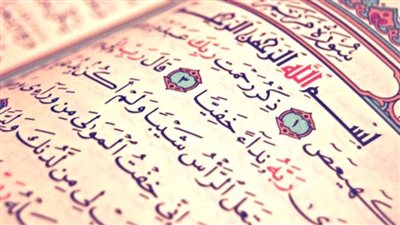 سُورَةُ مَرْيَمَ
بِسْمِ اللَّهِ الرَّحْمَٰنِ الرَّحِيمِ
كٓهيعٓصٓ ١ ذِكْرُ رَحْمَتِ رَبِّكَ
رَبَّهُ نِدَآءً خَفِيًّا ٣ قَالَ رَبِّ
ٱلرَّأْسُ شَيْبًا وَلَمْ أَكُنْ
خِفْتُ ٱلْمَوَٰلِيَ مِن وَرَآءِى
لِى مِن لَّدُنكَ وَلِيًّا